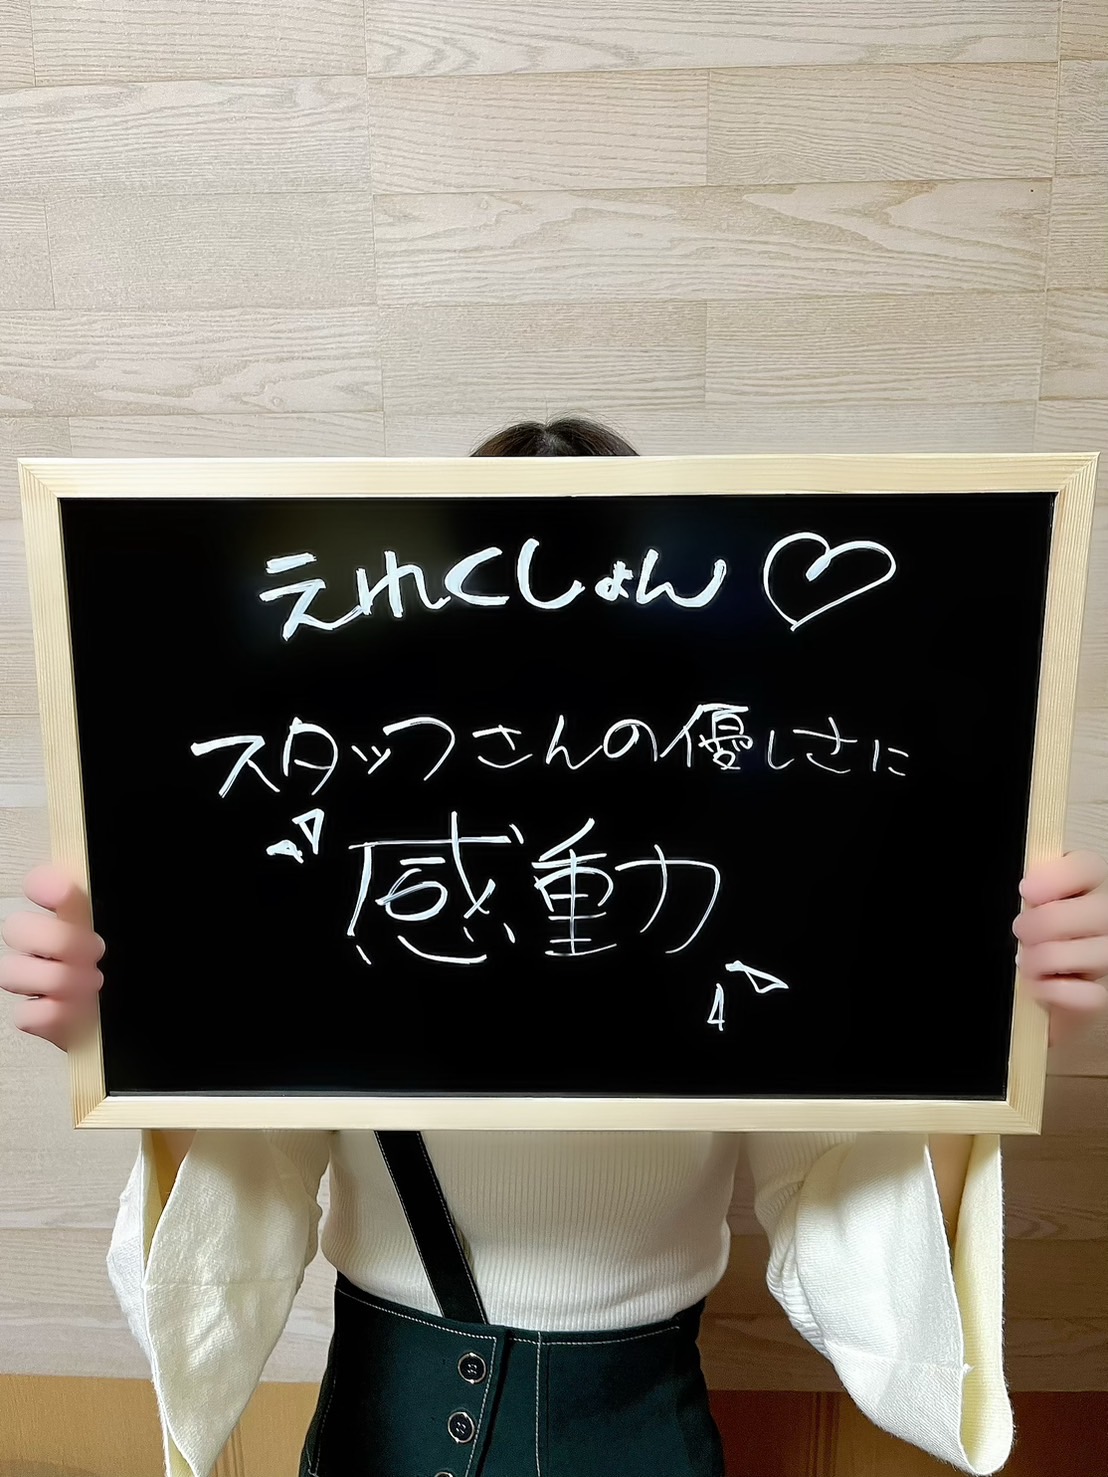 えれくしょん♡
スタッフさんの優しさに
〝感動〟